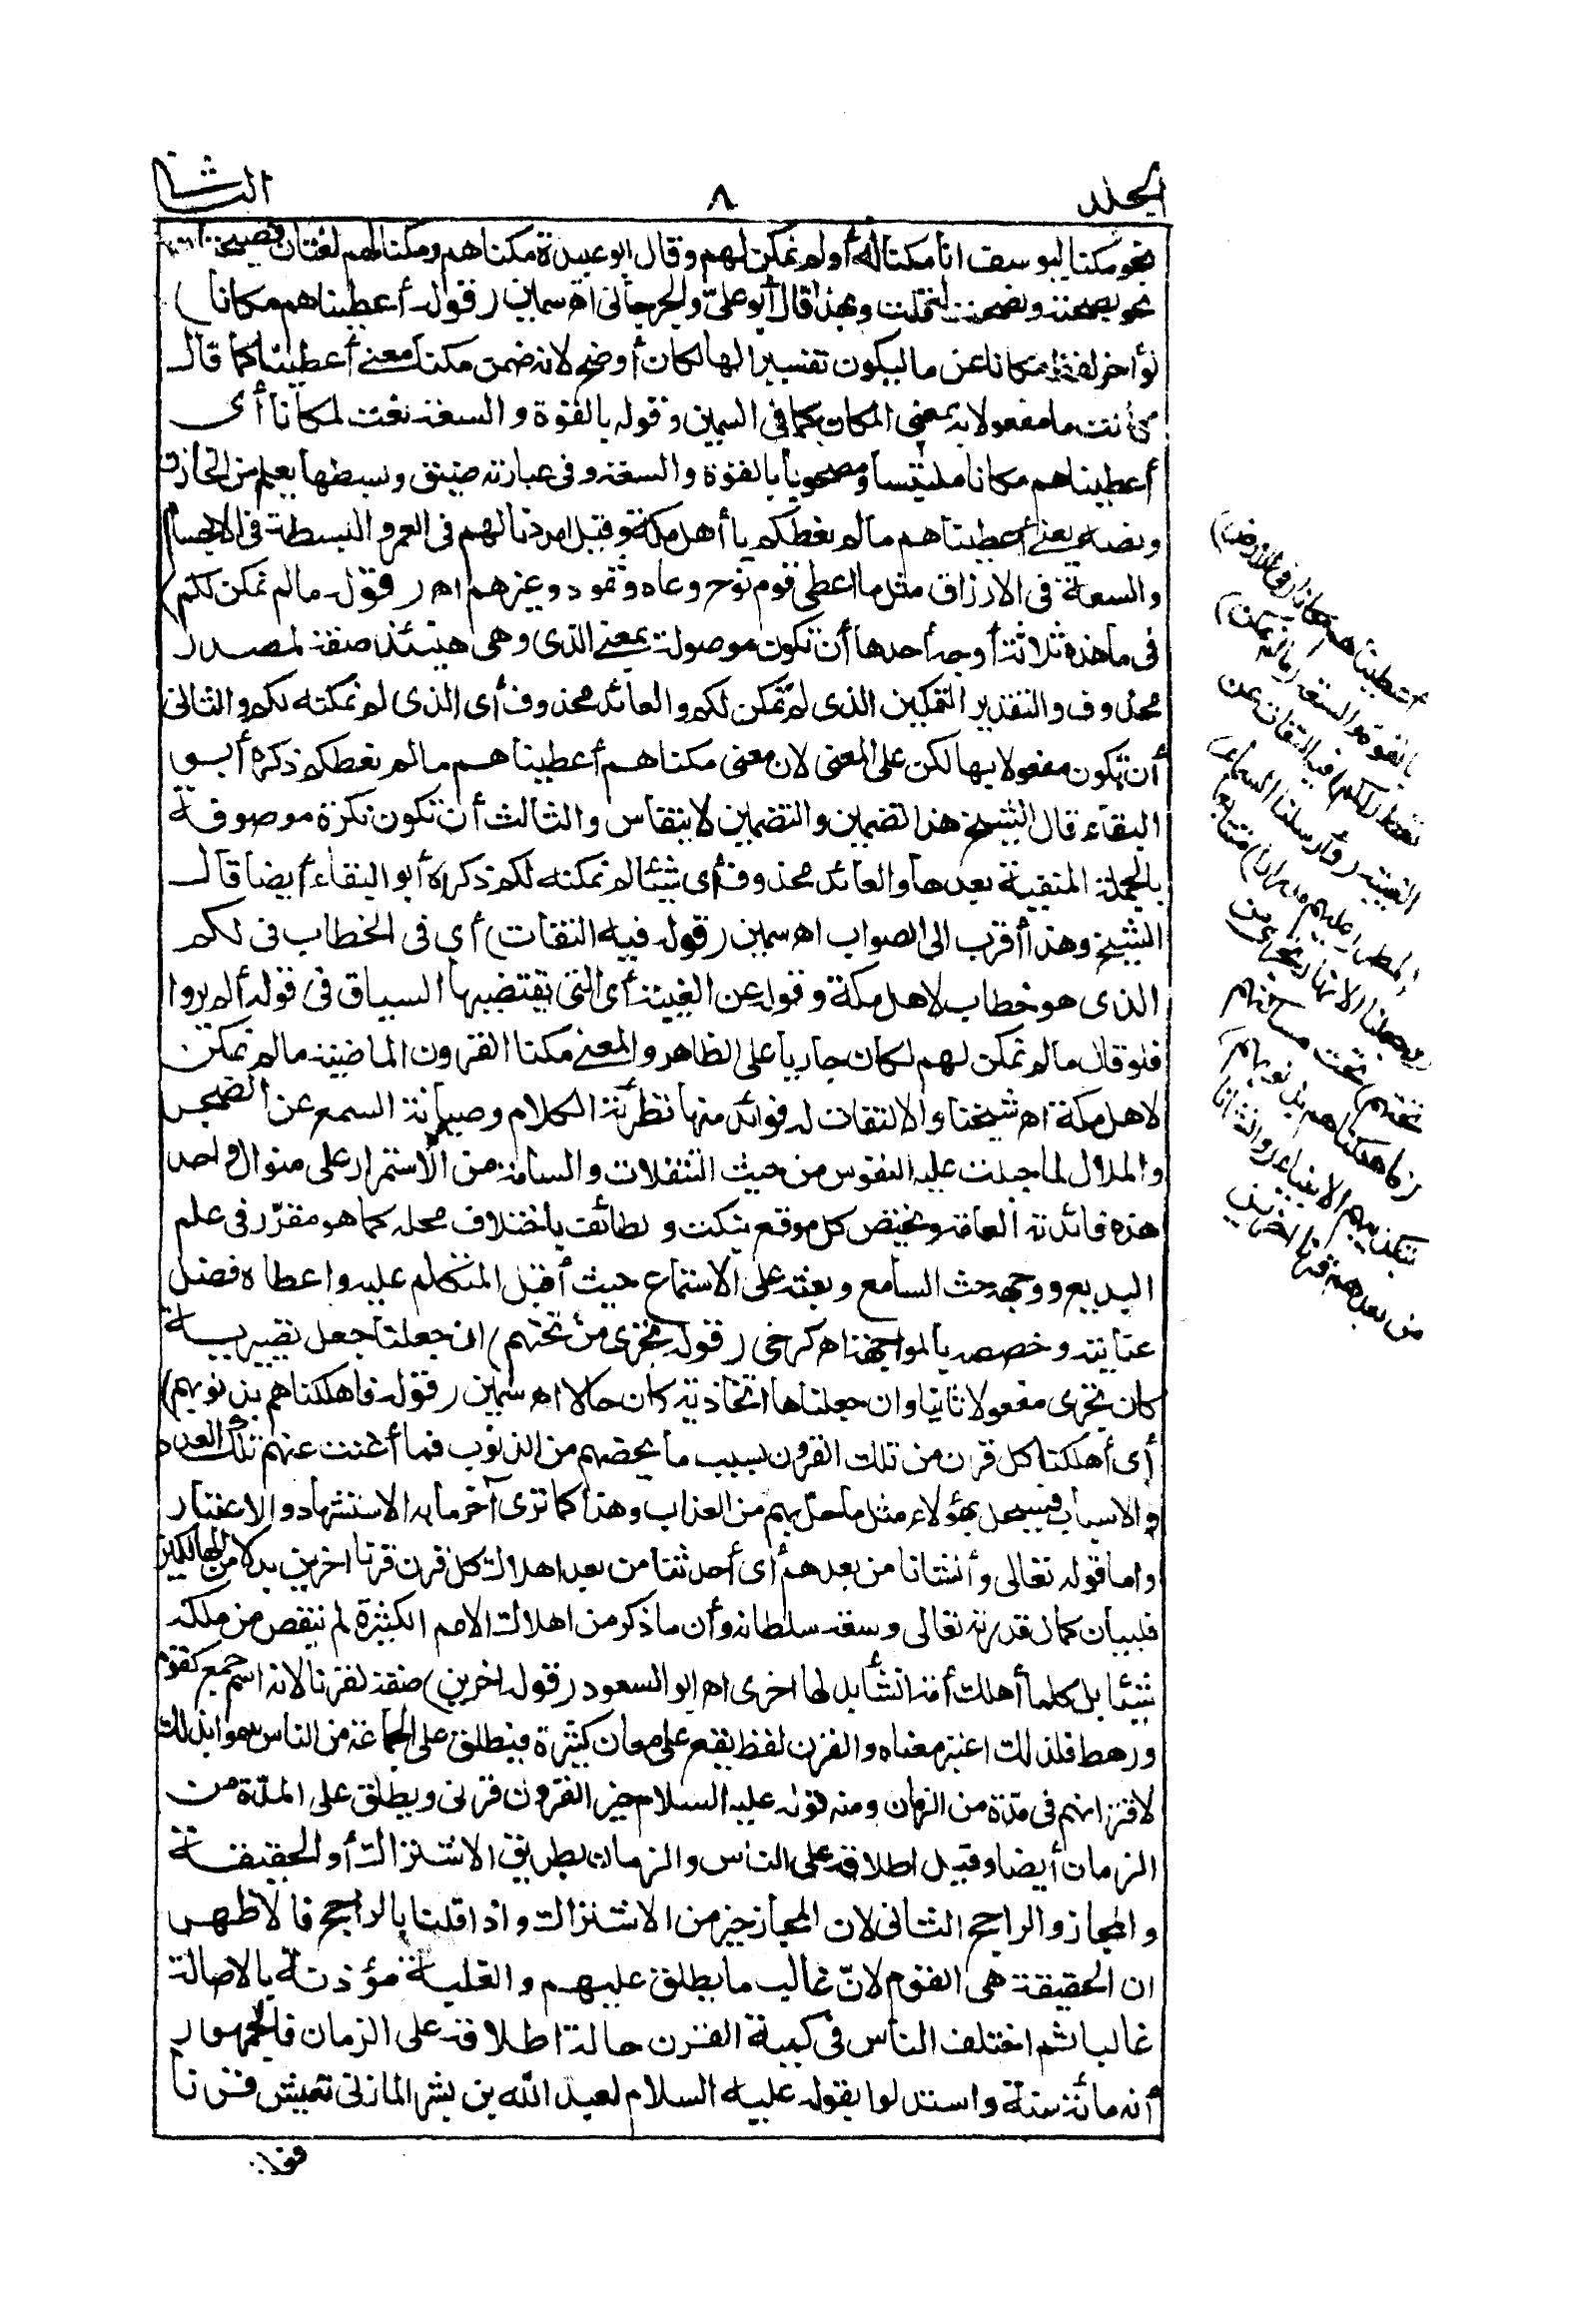 الجلد
٨
الثا
نحو مكنا ليوسف انا مكنا له أو لم نمكن لهم وقال ابو عبيدة مكناهم ومكنا لهم لغتان فصيحتان
نحو نصحته ونصحت له قلت وبهذا قال أبو علي والجرجاني اه سمين (قوله أعطيناهم مكانا)
لو أخر لفظ مكانا عن ما ليكون تفسيرا لها لكان أوضح لانه ضمن مكنا معنى أعطينا كما قال
كانت ما مفعولا به بمعنى المكان كما في السمين وقوله بالقوة والسعة نعت لمكانا أى
أعطيناهم مكانا ملتبسا ومصحوبا بالقوة والسعة وفى عبارته ضيق وبسطها يعلم من الخازن
ونصه يعنى أعطيناهم ما لم نعطكم يا أهل مكة وقيل امددنا لهم فى العمر والبسطة فى الاجسام
والسعة فى الارزاق مثل ما اعطى قوم نوح وعاد وثمود وغيرهم اه (قوله ما لم نمكن لكم)
فى ما هذه ثلاثة أوجه أحدها أن تكون موصولة بمعنى الذى وهى حينئذ صفة لمصدر
محذوف والتقدير التمكين الذى لم نمكن لكم والعائد محذوف أى الذى لم نمكنه لكم والثانى
أن تكون مفعولا بها لكن على المعنى لان معنى مكناهم أعطيناهم ما لم نعطكم ذكره أبو
البقاء قال الشيخ هذا تضمين والتضمين لا ينقاس والثالث أن تكون نكرة موصوفة
بالجملة المنفية بعدها والعائد محذوف أى شيئا لم نمكنه لكم ذكره أبو البقاء أيضا قال
الشيخ وهذا أقرب الى الصواب اه سمين (قوله فيه التفات) أى فى الخطاب فى لكم
الذى هو خطاب لاهل مكة وقوله عن الغيبة أى التى يقتضيها السياق فى قوله ألم يروا
فلو قال ما لم نمكن لهم لكان جاريا على الظاهر والمعنى مكنا القرون الماضية ما لم نمكن
لاهل مكة اه شيخنا والالتفات له فوائد منها تطرية الكلام وصيانة السمع عن الضجر
والملال لما جبلت عليه النفوس من حيث التنقلات والسآمة من الاستمرار على منوال واحد
هذه فائدته العامة ويختص كل موقع بنكت ولطائف باختلاف محله كما هو مقرّر فى علم
البديع ووجهه حث السامع وبعثه على الاستماع حيث أقبل المتكلم عليه واعطاه فضل
عنايته وخصصه بالمواجهة اه كرخى (قوله تجرى من تحتهم) ان جعلنا جعل تصييرية
كان تجرى مفعولا ثانيا وان جعلناها اتخاذية كان حالا اه سمين (قوله فاهلكناهم بذنوبهم)
أى أهلكنا كل قرن من تلك القرون بسبب ما يخصهم من الذنوب فما أغنت عنهم تلك العدد
والاسباب فسيحل بهؤلاء مثل ما حل بهم من العذاب وهذا كما ترى آخر ما به الاستشهاد والاعتبار
واما قوله تعالى وأنشأنا من بعدهم أى أحدثنا من بعد اهلاك كل قرن قرنا اخرين بدلا من الهالكين
فلبيان كمال قدرته تعالى وسعة سلطانه وأن ما ذكر من اهلاك الامم الكثيرة لم ينقص من ملكه
شيئا بل كلما أهلك أمة انشأ بدلها اخرى اه ابو السعود (قوله اخرين) صفة لقرنا لانه اسم جمع كقوم
ورهط فلذلك اعتبر معناه والقرن لفظ يقع على معان كثيرة فيطلق على الجماعة من الناس سموا بذلك
لاقترانهم فى مدّة من الزمان ومنه قوله عليه السلام خير القرون قرنى ويطلق على المدّة من
الزمان أيضا وقيل اطلاقه على الناس والزمان بطريق الاشتراك أو الحقيقة
والمجاز والراجح الثانى لان المجاز خير من الاشتراك واذا قلنا بالراجح فالاظهر
ان الحقيقة هى القوم لانّ غالب ما يطلق عليهم والغلبة مؤذنة بالاصالة
غالبا ثم اختلف الناس فى كمية القرن حالة اطلاقه على الزمان فالجمهور
أنه مائة سنة واستدلوا بقوله عليه السلام لعبد الله بن بشر المازنى تعيش قرنا
أعطيناهم مكانا (فى الارض)
بالقوة والسعة (ما لم نمكن)
نعط (لكم) فيه التفات عن
الغيبة (وأرسلنا السماء)
المطر (عليهم مدرارا) متتابعا
(وجعلنا الانهار تجرى من
تحتهم) تحت مساكنهم
(فاهلكناهم بذنوبهم)
بتكذيبهم الانبياء (وانشأنا
من بعدهم قرنا اخرين